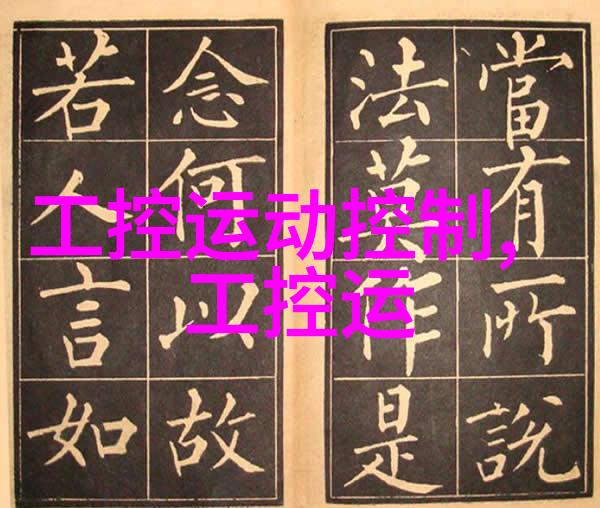 當有所說
法莫作是
念何以故
若人言如
工控运动控制,
工控运